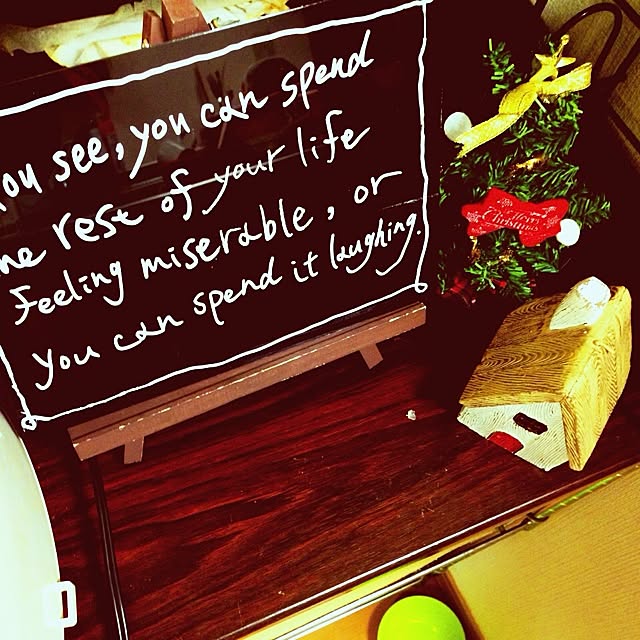 ou see, you can spend
he rest of your life
Feeling miserable, or
you can spend it laughing.
Merry
Christmas